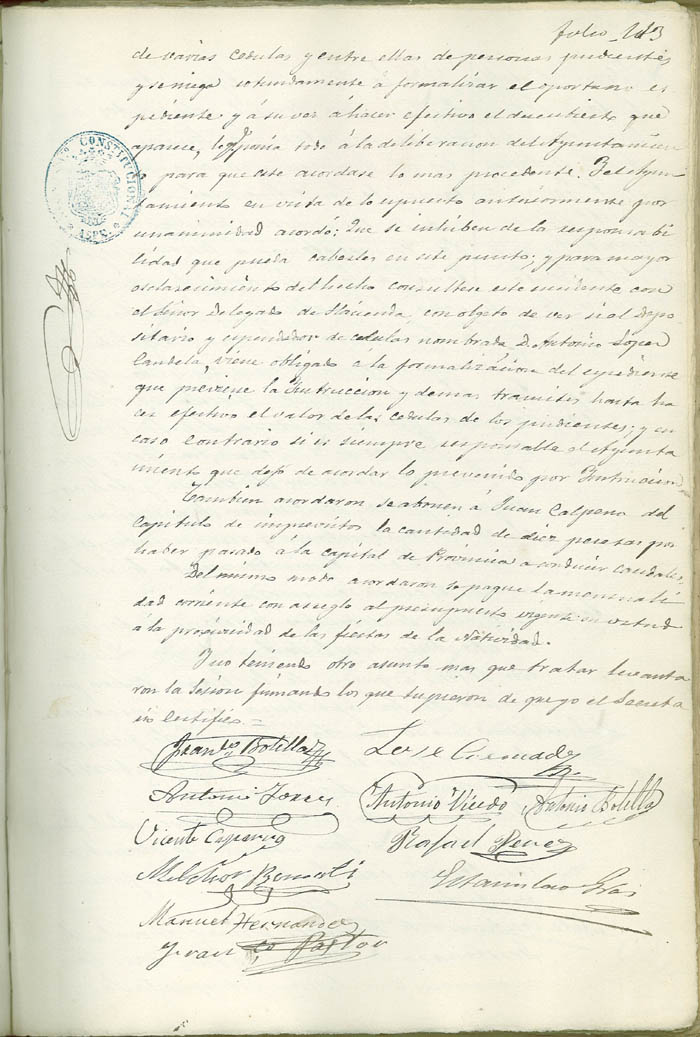 Folio 113
de varias cedulas y entre ellas de personas pudientes
y se niega rotundamente á formalizar el oportuno es
pediente y á su vez á hacer efectivo el descubierto que
aparece, lo ponia todo á la deliberacion del Ayuntamien
para que este acordase lo mas procedente. Y el Ayun
tamiento en vista de lo espuesto anteriormente por
unanimidad acordó: Que se inhiben de la responsabi
lidad que pueda caberles en este punto; y para mayor
esclarecimiento del hecho consultese este incidente con
el Señor Delegado de Hacienda, con objeto de ver si el depo
sitario y espendedor de cedulas nombrado D. Antonio Lopez
Candela, viene obligado á la formalizacion del espediente
que previene la Instruccion y demas tramites hasta ha
cer efectivo el valor de las cedulas de los pudientes; y en
caso contrario si es siempre responsable el Ayunta
miento que dejó de acordar lo prevenido por Instruccion
Tambien acordaron se abonen á Juan Calpena del
Capitulo de imprevistos la cantidad de diez pesetas por
haber pasado á la capital de Provincia a conducir caudales.
Del mismo modo acordaron se pague la mensuali
dad corriente con arreglo al presupuesto vigente en virtud
á la proximidad de las fiestas de la Natividad.
Y no teniendo otro asunto mas que tratar levanta
ron la Sesion firmando los que supieron de que yo el Secreta
rio Certifico =
CONSTITUCIONAL
ASPE
Franco Botella
Jose
Antonio Torres
Antonio Vicedo
Antonio Botella
Vicente
Rafael Perez
Melchor
Estanislao
Manuel Hernandez
Franco Pastor